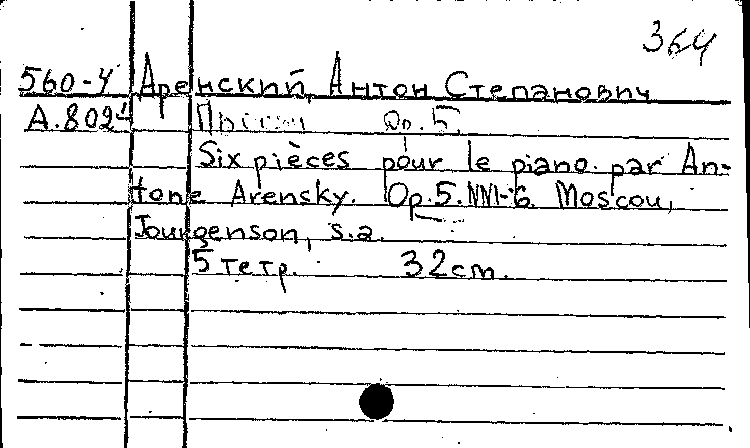 364
560-4 Аренский, Антон Степанович
А.802¹ Оп.5.
Six pièces pour le piano par An-
tone Arensky. Op.5. №№1-6. Moscou,
Jourgenson, s.a.
5 тетр. 32 cm.